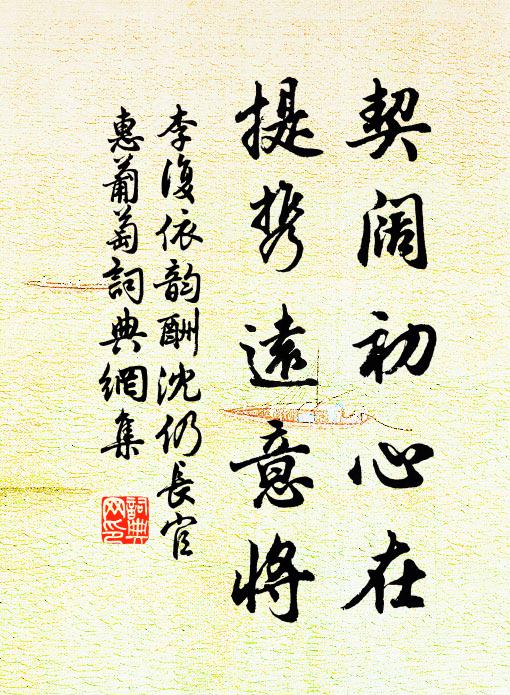 契阔初心在
提携遠意將
李復依韵酬沈仍長官
惠葡萄詞典網集
詞典網印